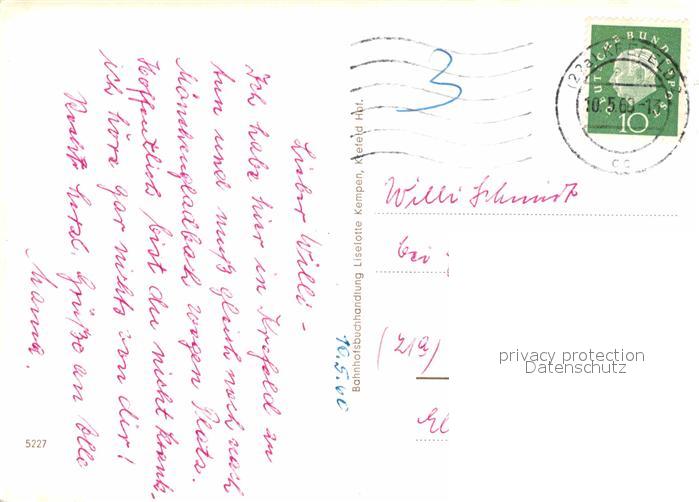 Lieber Willi –
Ich habe hier in Krefeld zu
tun und muß gleich noch nach
Mönchengladbach wegen Platz.
Hoffentlich bist du nicht krank,
ich höre gar nichts von dir!
Recht herzl. Grüße an Alle
Mama.
10.5.60
5227
Bahnhofsbuchhandlung Liselotte Kempen, Krefeld Hbf.
3
DEUTSCHE BUNDESPOST
10
(22a) KREFELD
10.5.60-13
Willi Schmidt
bei
(21a)
privacy protection
Datenschutz